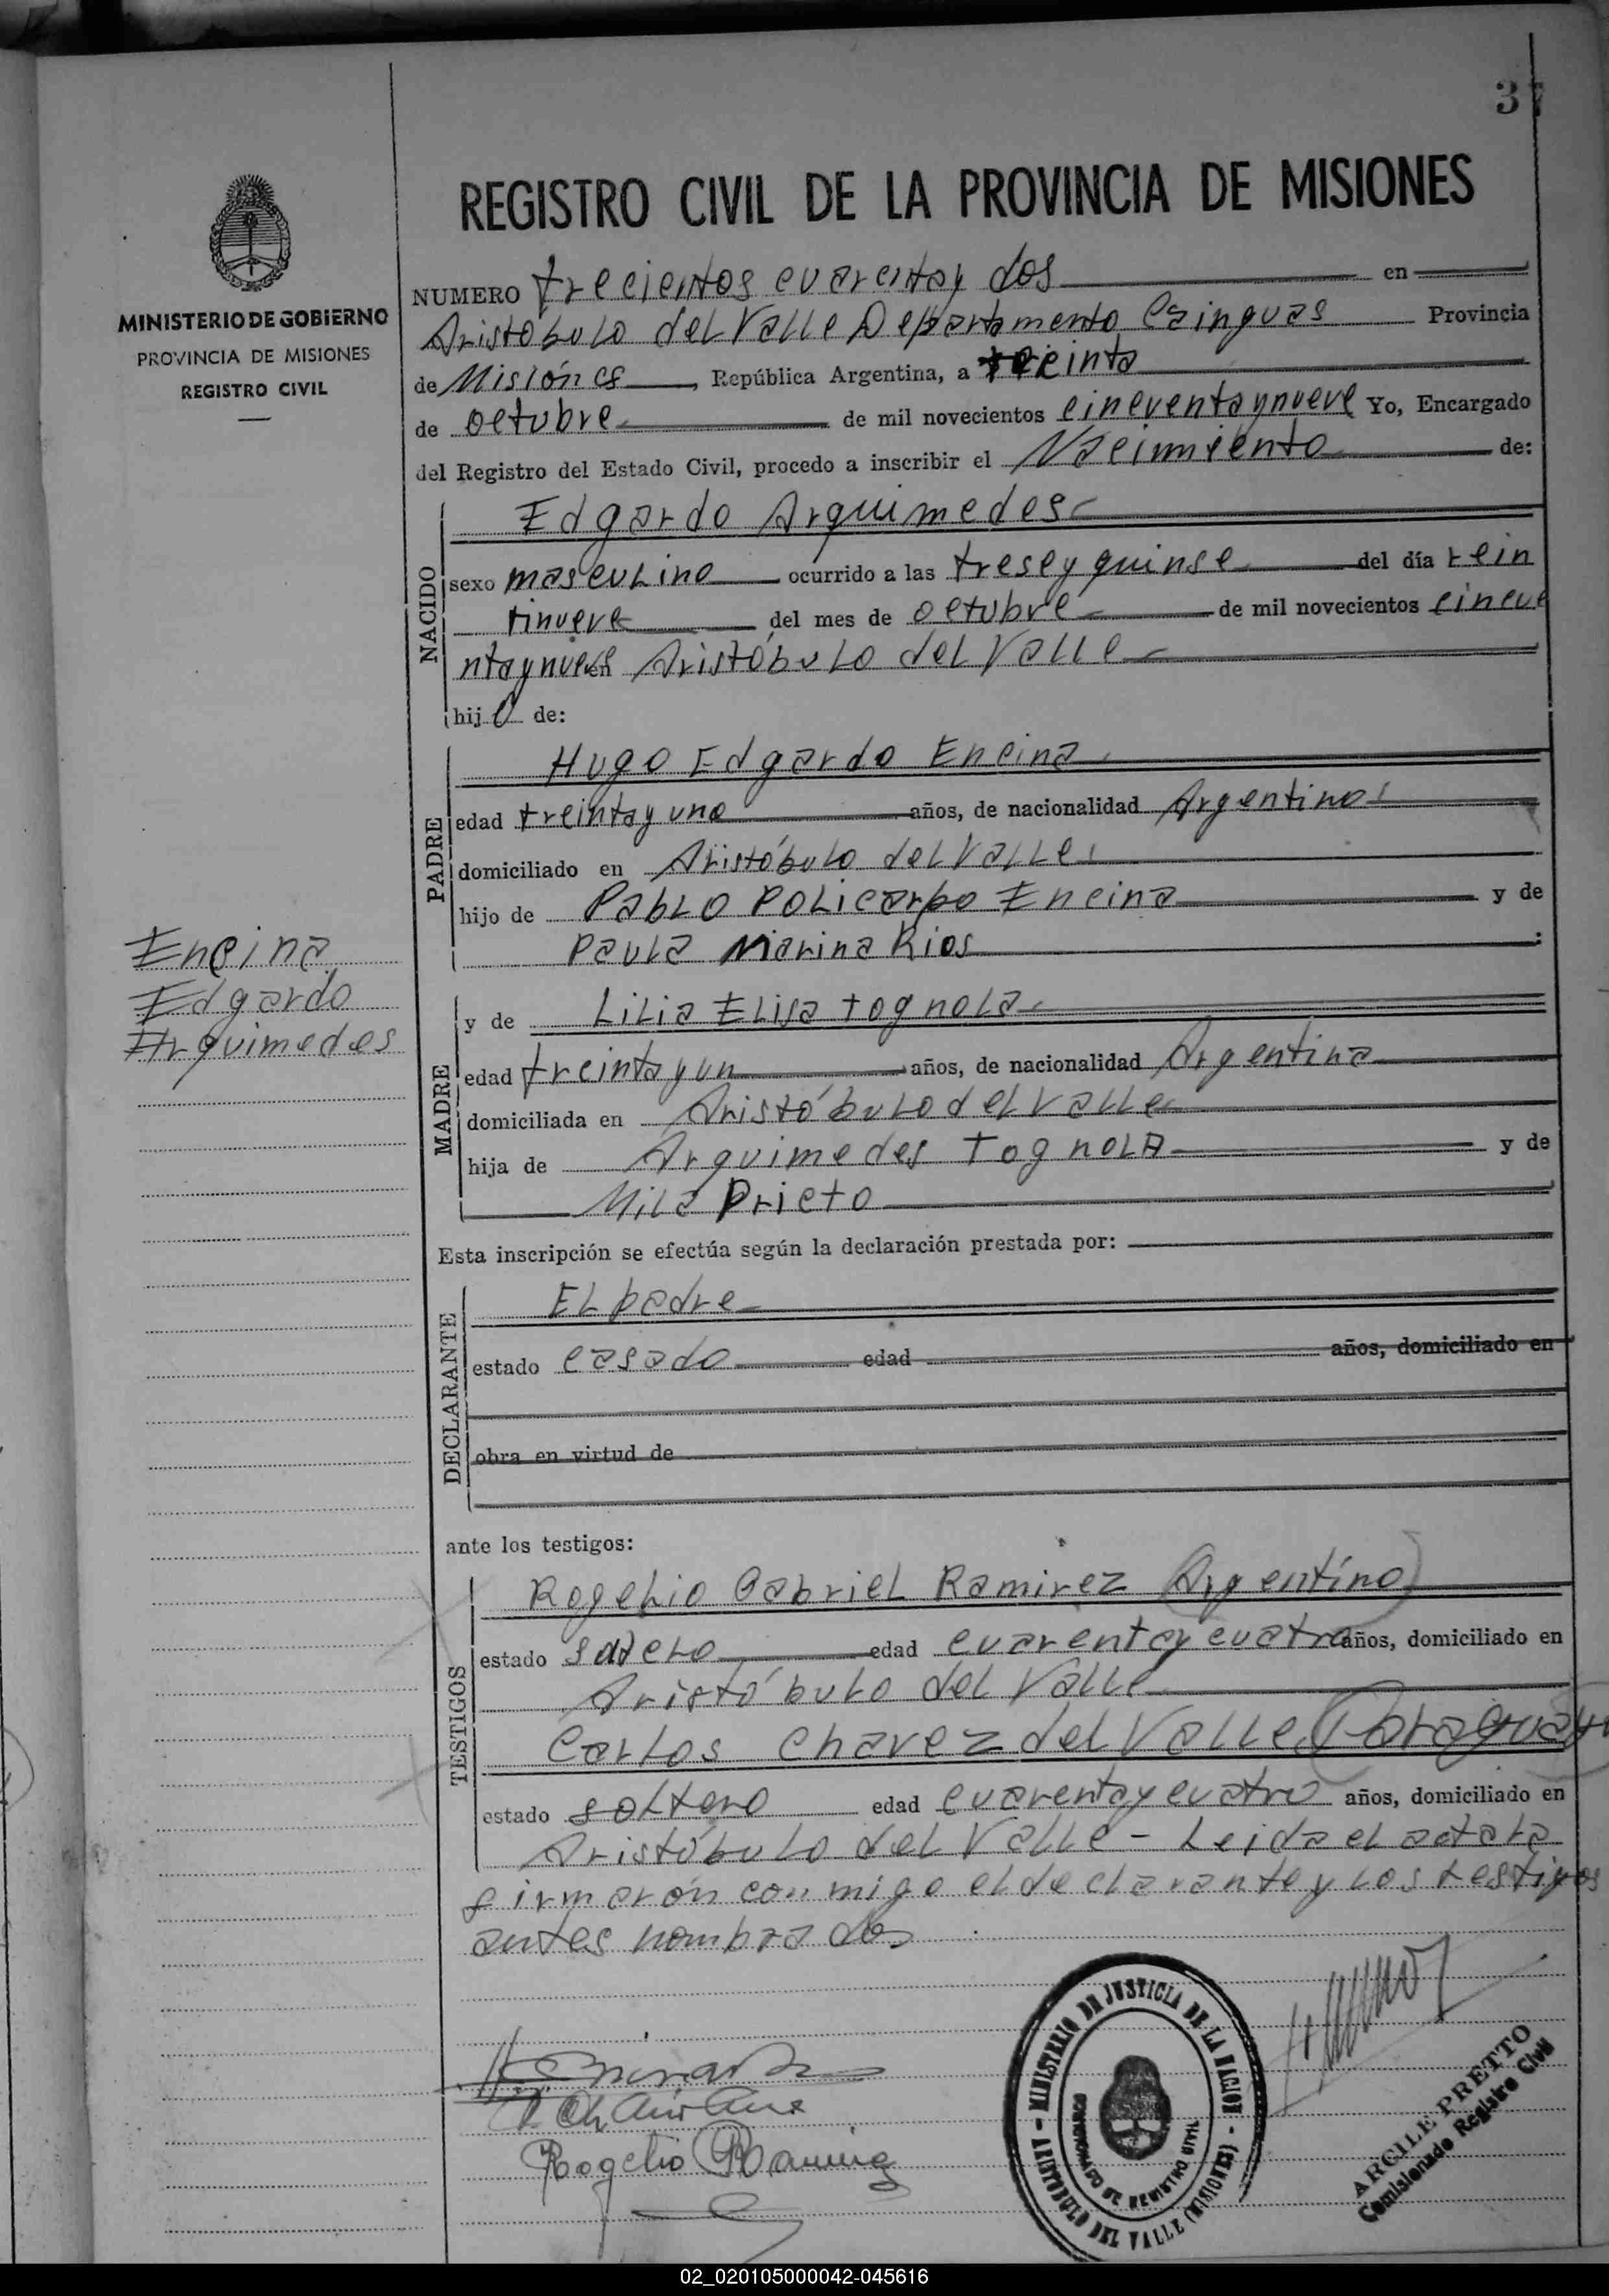 37
REGISTRO CIVIL DE LA PROVINCIA DE MISIONES
MINISTERIO DE GOBIERNO
PROVINCIA DE MISIONES
REGISTRO CIVIL
NUMERO trecientos cuarentay dos en
Aristóbulo del Valle Departamento Cainguas Provincia
de Misiónes, República Argentina, a treinta
de octubre de mil novecientos cincuentaynueve Yo, Encargado
del Registro del Estado Civil, procedo a inscribir el Nacimiento de:
NACIDO
Edgardo Arquimedes
sexo masculino ocurrido a las trese y quinse del día vein
tinueve del mes de octubre de mil novecientos cincue
ntaynueve en Aristóbulo del Valle
hijo de:
PADRE
Hugo Edgardo Encina
edad treintay uno años, de nacionalidad Argentino
domiciliado en Aristóbulo del Valle
hijo de Pablo Policarpo Encina y de
Paula Marina Rios :
Encina
Edgardo
Arquimedes
MADRE
y de Lilia Elisa Tognola
edad treintay un años, de nacionalidad Argentina
domiciliada en Aristóbulo del Valle
hija de Arquimedes Tognola y de
Mila Prieto
Esta inscripción se efectúa según la declaración prestada por:
DECLARANTE
El padre
estado casado edad años, domiciliado en
obra en virtud de
ante los testigos:
TESTIGOS
Rogelio Gabriel Ramirez (Argentino)
estado edad cuarentay cuatro años, domiciliado en
Aristóbulo del Valle
Carlos Chavez del Valle (Paraguayo
estado soltero edad cuarentay cuatro años, domiciliado en
Aristóbulo del Valle - Leida el acta la
firmarón conmigo el declarante y los testigos
antes nombrados
Rogelio Ramirez
MINISTERIO DE JUSTICIA DE LA NACION - ARISTOBULO DEL VALLE (MISIONES) -
DE REGISTRO CIVIL
ARGILE PRETTO
Comisionado Registro Civil
02_020105000042-045616